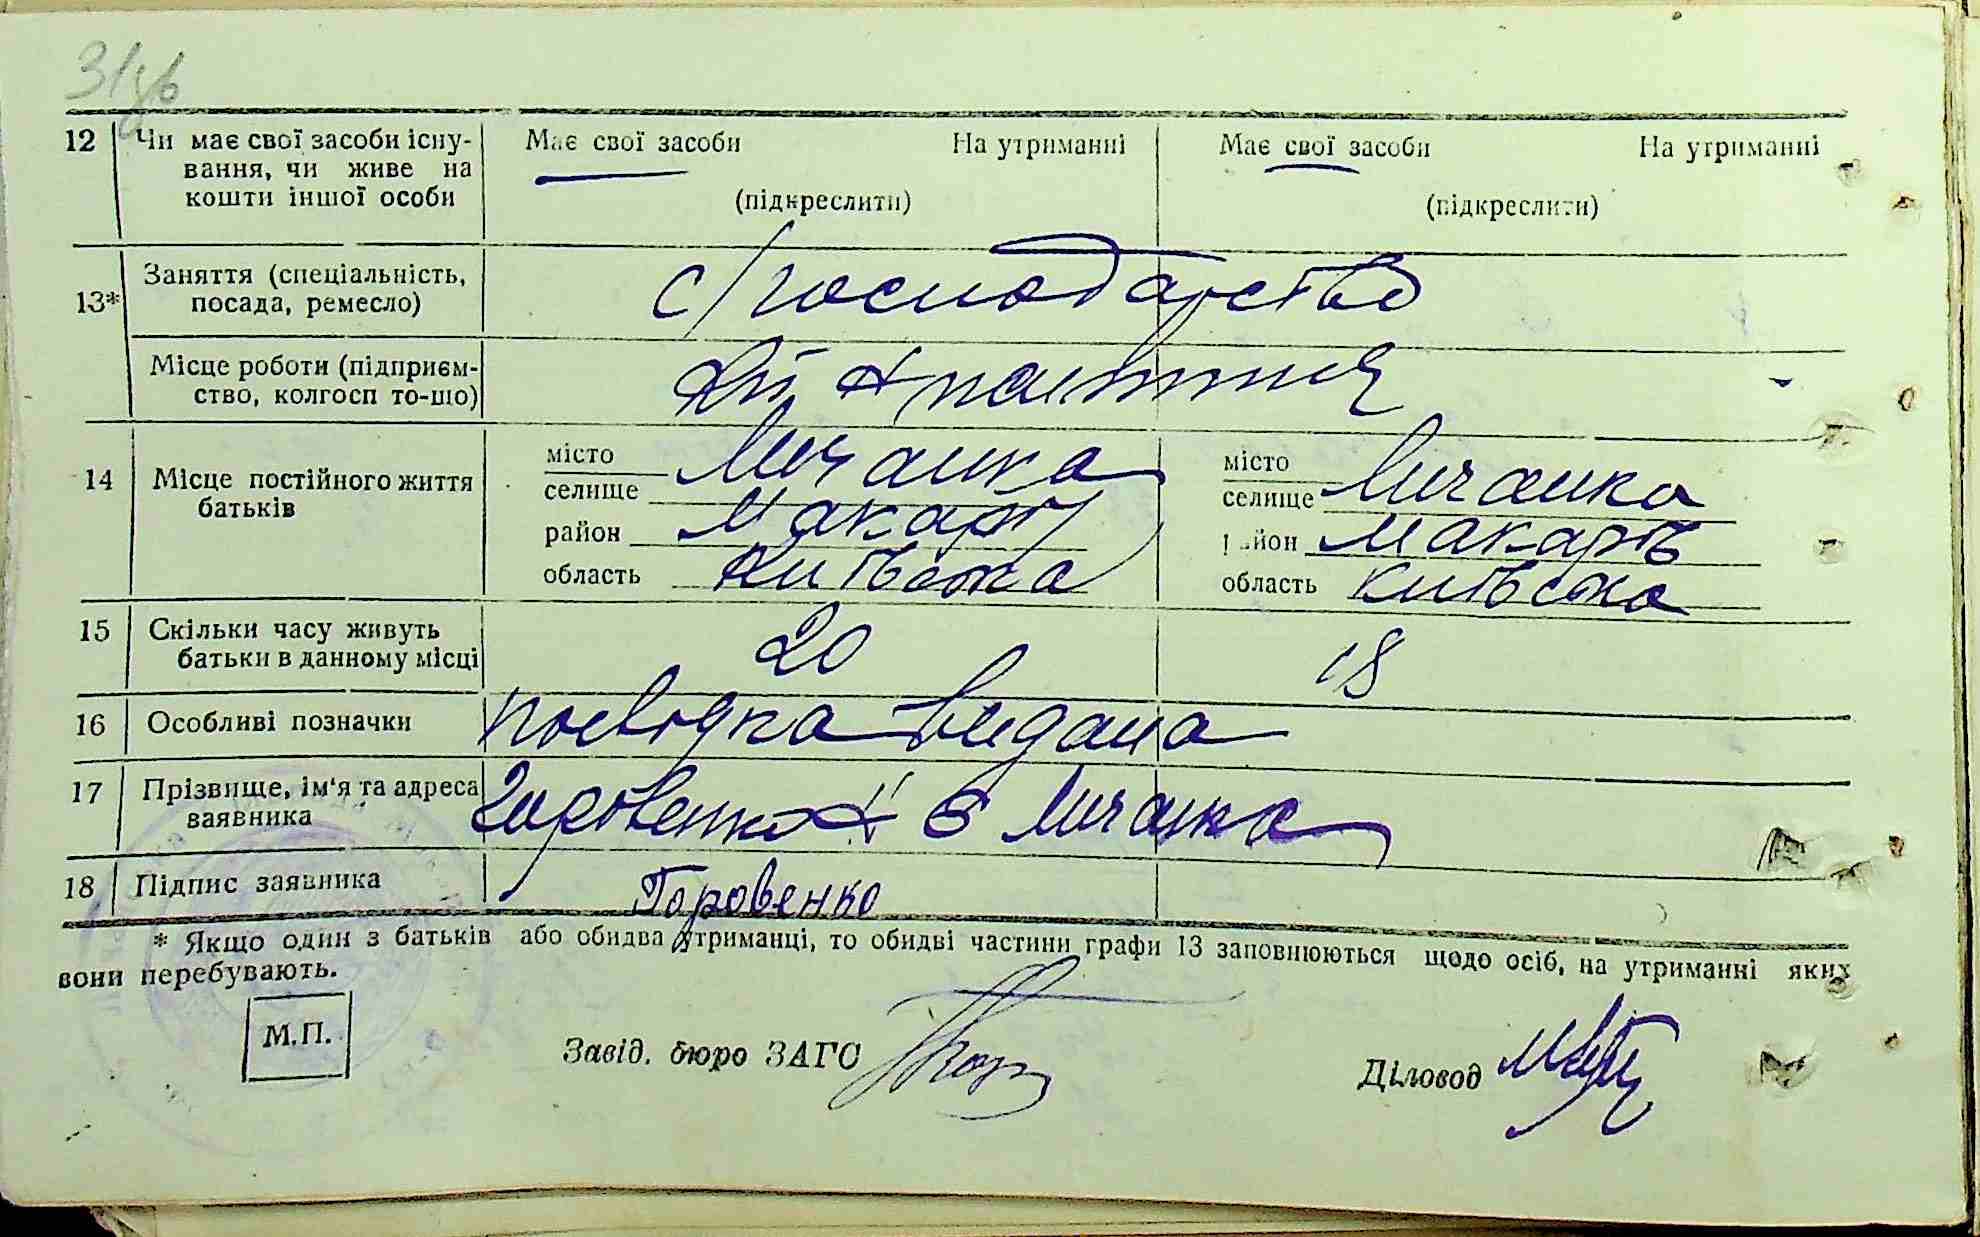 31зв
12 Чи має свої засоби існу-
вання, чи живе на
кошти іншої особи
Має свої засоби На утриманні
(підкреслити)
Має свої засоби На утриманні
(підкреслити)
13* Заняття (спеціальність,
посада, ремесло)
с/господарство
Місце роботи (підприєм-
ство, колгосп то-що)
14 Місце постійного життя
батьків
місто
селище Личанка
район Макарів
область Київська
місто
селище Личанка
район Макарів
область Київська
15 Скільки часу живуть
батьки в данному місці
20
18
16 Особливі позначки
посвідка видана
17 Прізвище, ім'я та адреса
заявника
Горовенко с Личанка
18 Підпис заявника
Горовенко
* Якщо один з батьків або обидва утриманці, то обидві частини графи 13 заповнюються щодо осіб, на утриманні яких
вони перебувають.
М.П.
Завід. бюро ЗАГС
Діловод